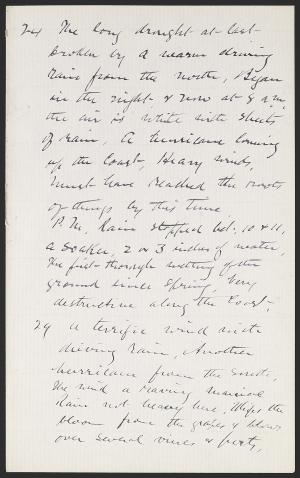 24 The long drought at last
broken by a warm driving
rain from the north, Began
in the night & now at 8 a.m.
the air is white with sheets
of rain, A hurricane coming
up the Coast, Heavy winds,
must have reached the roots
of things by this time,
P.M. Rain stopped bet. 10 & 11,
a soaker, 2 or 3 inches of water,
The first thorough wetting of the
ground since Spring, Very
destructive along the Coast.
29 A terrific wind with
driving rain, Another
hurricane from the South,
The wind a raving maniac
Rain not heavy here, Whips the
bloom from the grapes & blows
over several vines &